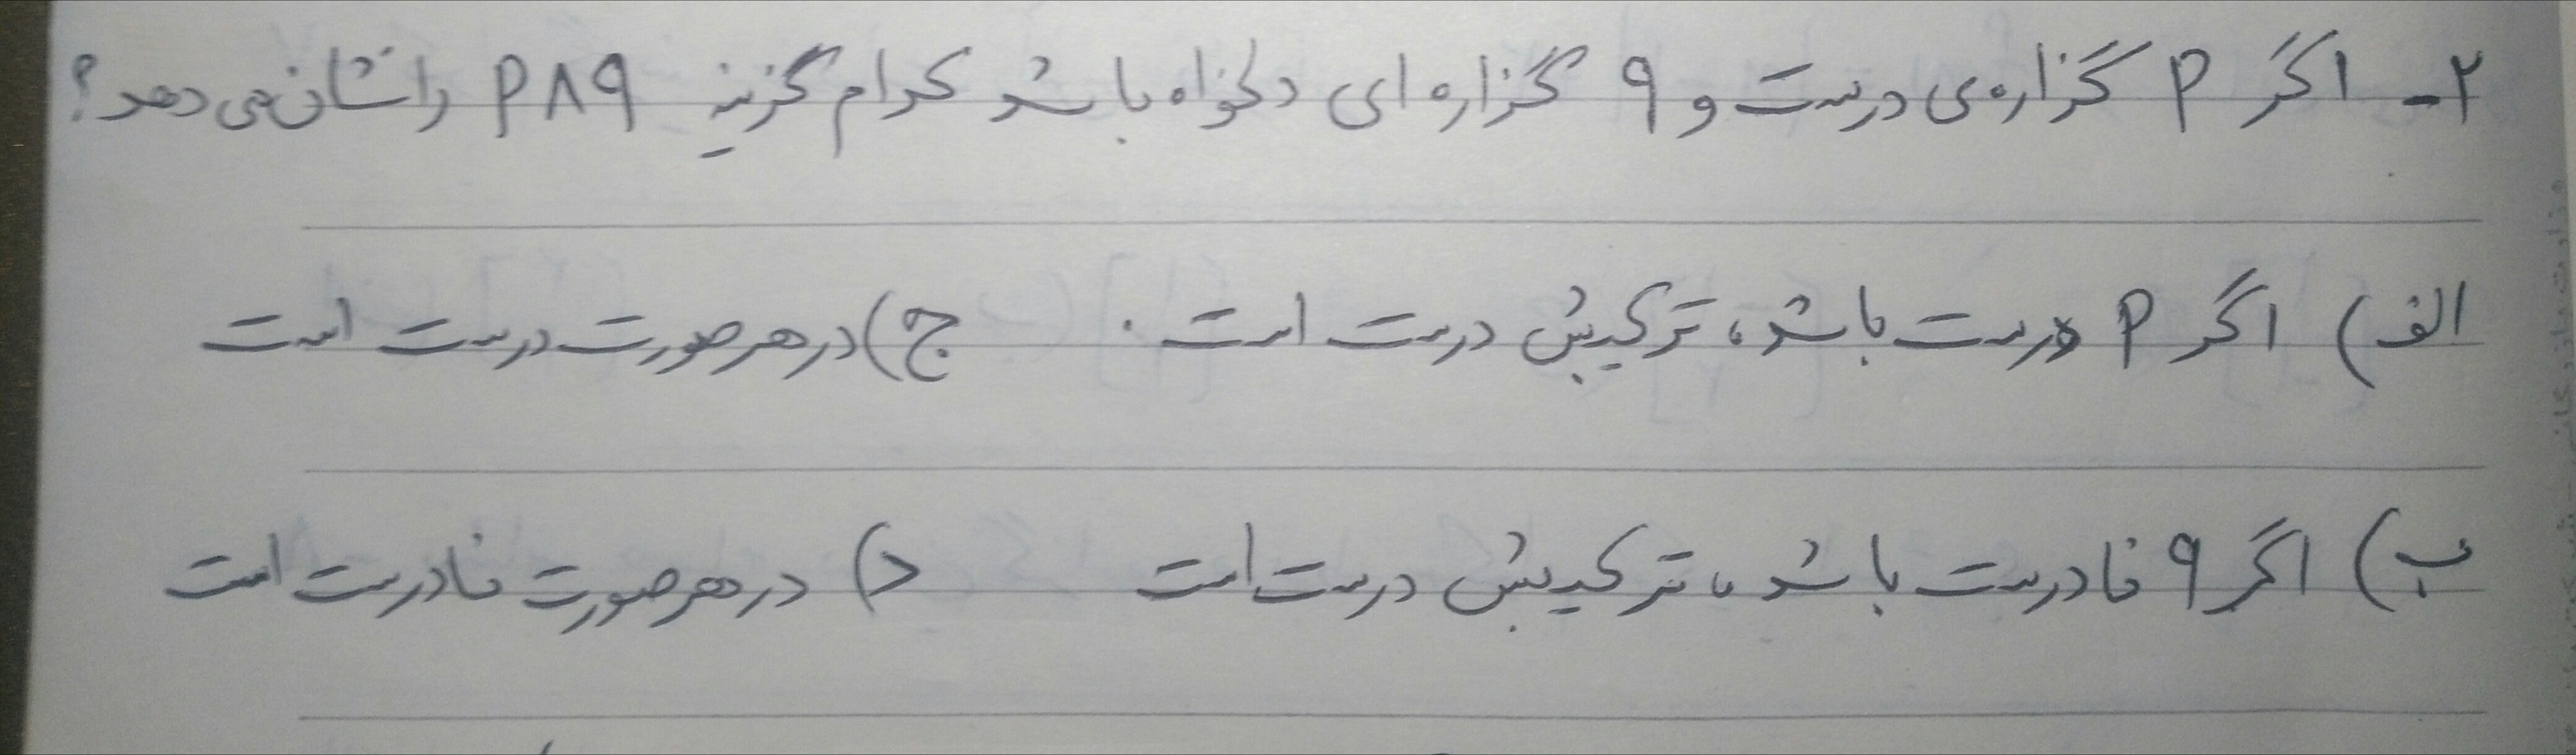 ۲- اگر P گزاره‌ی درست و q گزاره ای دلخواه باشد کدام گزینه P∧q را نشان می دهد؟
الف) اگر P درست باشد، ترکیبش درست است. ج) در هر صورت درست است
ب) اگر q نادرست باشد، ترکیبش درست است د) در هر صورت نادرست است